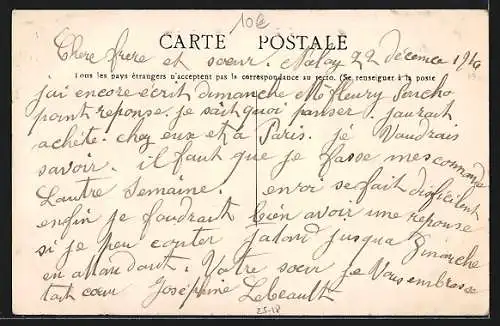 10€
CARTE POSTALE
Chere frere et soeur. Malay 22 décembre 1914
Tous les pays étrangers n'acceptent pas la correspondance au recto. (Se renseigner à la poste
jai encore écrit dimanche Mr fleury Porcho
point reponse. je sait quoi panser. jaurait
achété. chez eux et a Paris. jé Vaudrais
savoir. il faut que je fasse mes command
Lautre semaine. envoi se fait dificilent
enfin je faudrait bien avoir une reponse
si je peu conter jatend jusqua Dimanche
en attandant. Votre soeur je Vous embrasse
tout coeur Joséphine Lebeault
25-18